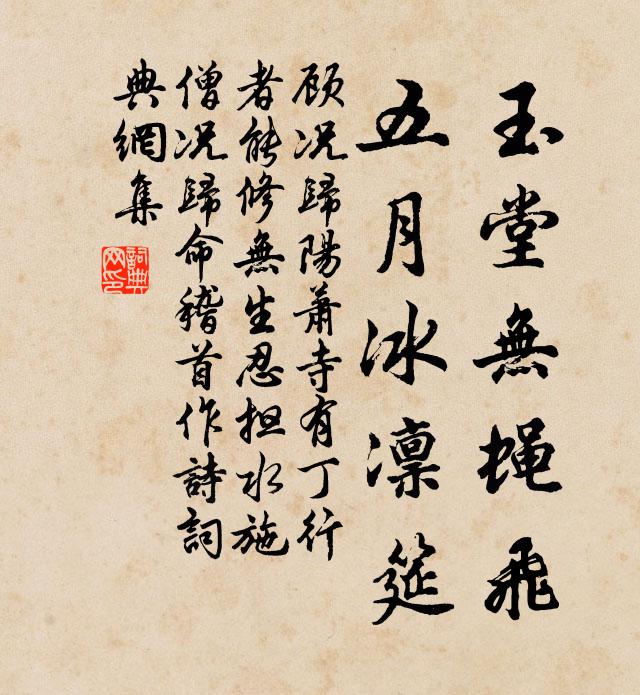 玉堂無蝇飛
五月冰凛筵
顾况歸陽蕭寺有丁行
者能修無生忍担水施
僧况歸命稽首作詩詞
典網集
詞典網印